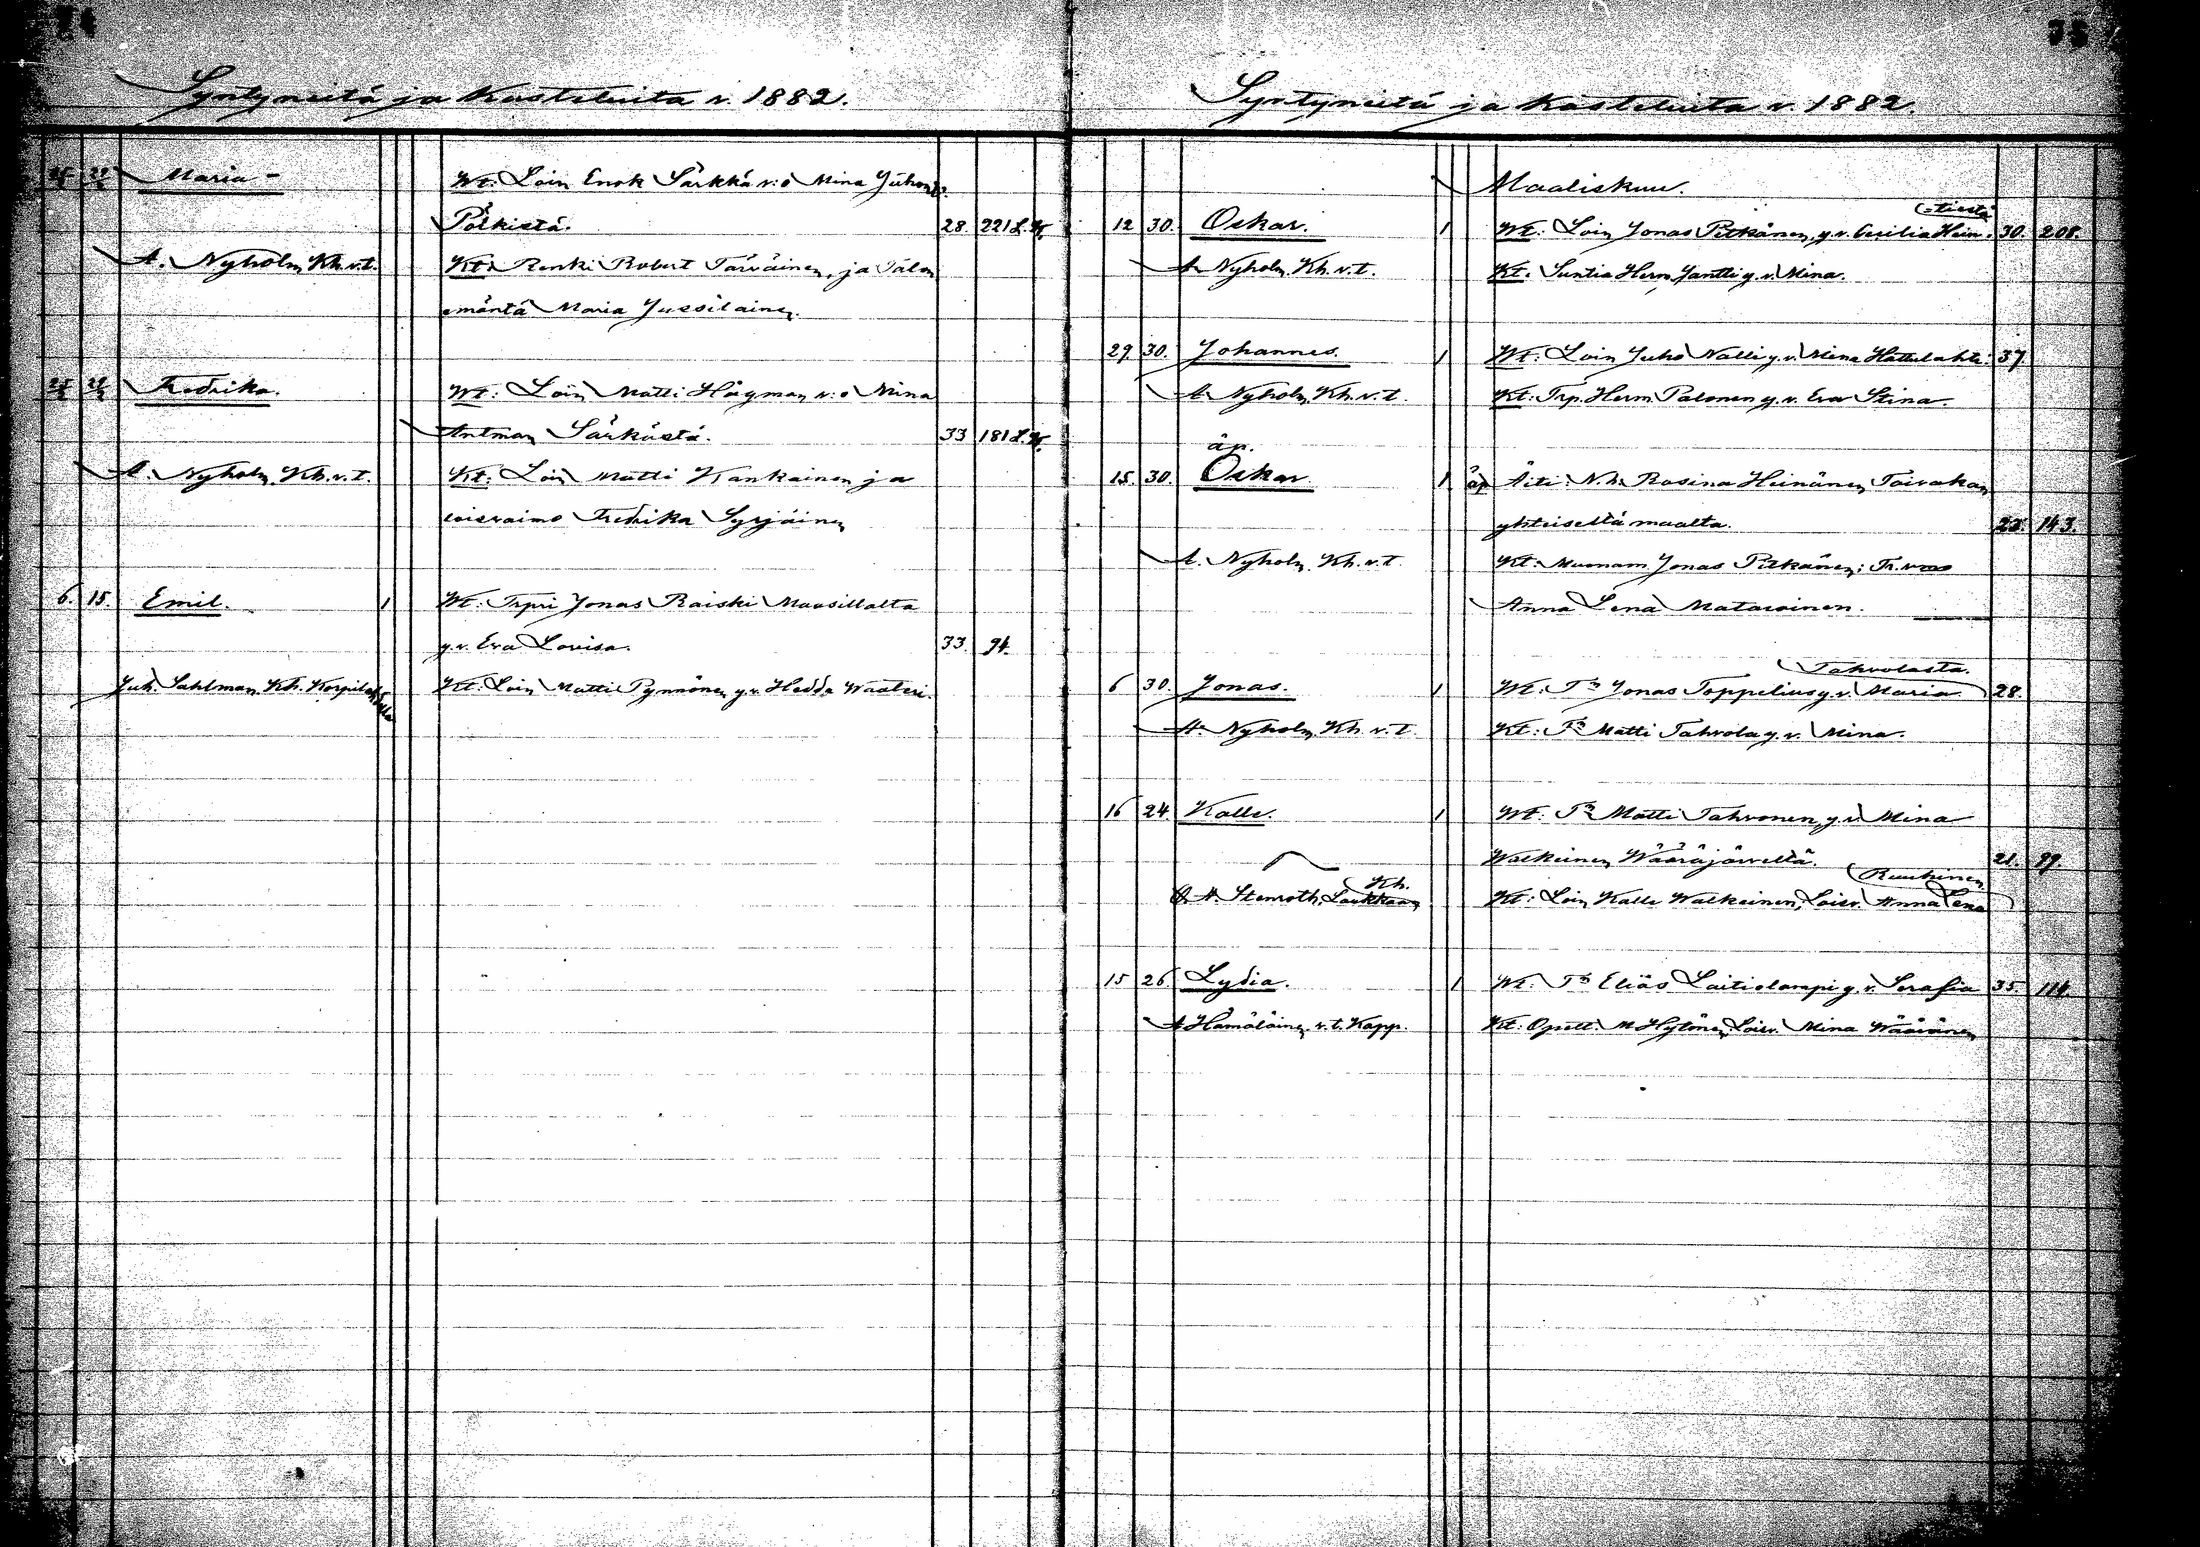 74
Syntyneitä ja Kasteluita v. 1882.
Maria - Wt: Loin Enok Särkkä v:o Mina Juhont.
Pölkistä. 28. 221 L.K.
A. Nyholm, Kh. v.t. Kt: Renki Robert Tarvainen, ja Talon
emäntä Maria Jussilainen.
Fredrika. Wt: Loin Matti Hagman v:o Mina
Antman Särkästä. 33 181 L.K.
A. Nyholm, Kh. v.t. Kt: Loin Matti Kankainen ja
loisvaimo Fredrika Syrjäinen
6. 15. Emil. 1 Wt: Trpri Jonas Raiski Muusillalta
g.v. Eva Lovisa. 33. 94.
Juh. Sahlman, Kh. Korpilahdella Kt: Loin Matti Pynnönen g.v. Hedda
75
Syntyneitä ja Kasteluita v. 1882.
Maaliskuu.
12 30. Oskar. 1 Wt: Loin Jonas Pitkänen, g.v. Cecilia Hein- 30. 208.
A Nyholm, Kh. v.t. Kt. Suntia Herm. Jantti g.v. Mina.
29 30. Johannes. 1 Wt: Loin Juho Nalli g.v. Mina Hattulahti. 37
A. Nyholm, Kh. v.t. Kt: Trp. Herm. Palonen g.v. Eva Stina.
äp.
15. 30. Oskar 1 äp Äiti: N.h. Rosina Heinänen, Toivakan
yhteiseltä maalta. 143.
A. Nyholm, Kh. v.t. Kt: Muonam. Jonas Pitkänen; Tr.
Anna Lena Matarainen.
Tahvolasta.
6 30. Jonas. 1 Wt: Jonas Toppelius g.v. Maria 28.
A. Nyholm, Kh. v.t. Kt: Matti Tahvola g.v. Mina.
16 24 Kalle. 1 Wt: Matti Tahvonen, g.v. Mina
Walkeinen Wääräjärveltä. 21.
A. Stenroth, Kh. Laukkaan Kt: Loin Kalle Walkeinen, Loisv. Anna Lena Ruuhinen
15 26 Lydia. 1 Wt. Eliäs Laitialampi g.v. Serafia 35. 114.
A Hämäläinen, v.t. Kapp. Kt: Opett. M Hytönen, Loisv. Mina